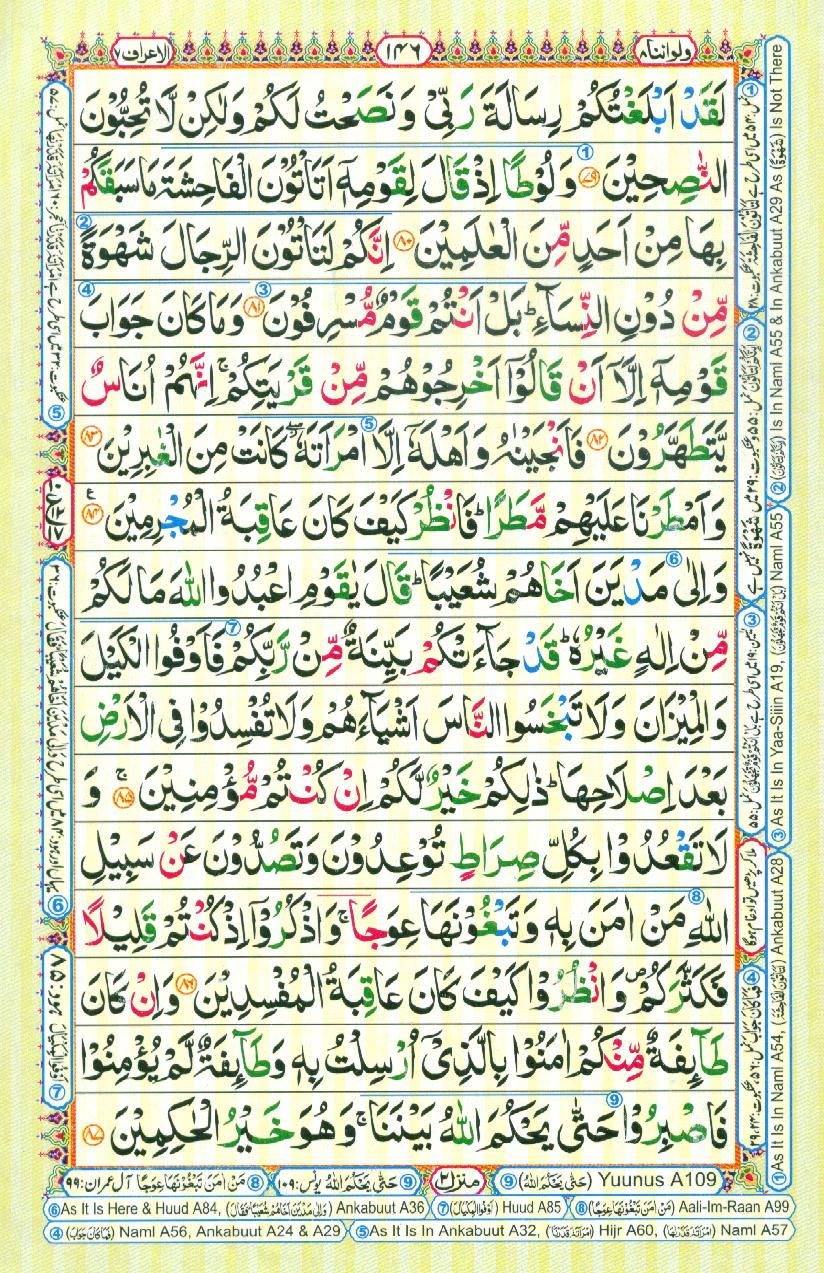 ولواننا ٨
١٤٦
الاعراف ٧
لَقَدْ اَبْلَغْتُكُمْ رِسَالَةَ رَبِّيْ وَ نَصَحْتُ لَكُمْ وَلٰكِنْ لَّا تُحِبُّوْنَ
النّٰصِحِيْنَ ﴿٧٩﴾ وَ لُوْطًا اِذْ قَالَ لِقَوْمِهٖٓ اَتَاْتُوْنَ الْفَاحِشَةَ مَا سَبَقَكُمْ
بِهَا مِنْ اَحَدٍ مِّنَ الْعٰلَمِيْنَ ﴿٨٠﴾ اِنَّكُمْ لَتَاْتُوْنَ الرِّجَالَ شَهْوَةً
مِّنْ دُوْنِ النِّسَآءِ ؕ بَلْ اَنْتُمْ قَوْمٌ مُّسْرِفُوْنَ ﴿٨١﴾ وَمَا كَانَ جَوَابَ
قَوْمِهٖٓ اِلَّآ اَنْ قَالُوْٓا اَخْرِجُوْهُمْ مِّنْ قَرْيَتِكُمْ ۚ اِنَّهُمْ اُنَاسٌ
يَّتَطَهَّرُوْنَ ﴿٨٢﴾ فَاَنْجَيْنٰهُ وَ اَهْلَهٗٓ اِلَّا امْرَاَتَهٗ ۖ كَانَتْ مِنَ الْغٰبِرِيْنَ ﴿٨٣﴾
وَ اَمْطَرْنَا عَلَيْهِمْ مَّطَرًا ؕ فَانْظُرْ كَيْفَ كَانَ عَاقِبَةُ الْمُجْرِمِيْنَ ﴿٨٤﴾
وَ اِلٰى مَدْيَنَ اَخَاهُمْ شُعَيْبًا ؕ قَالَ يٰقَوْمِ اعْبُدُوا اللّٰهَ مَا لَكُمْ
مِّنْ اِلٰهٍ غَيْرُهٗ ؕ قَدْ جَآءَتْكُمْ بَيِّنَةٌ مِّنْ رَّبِّكُمْ فَاَوْفُوا الْكَيْلَ
وَالْمِيْزَانَ وَلَا تَبْخَسُوا النَّاسَ اَشْيَآءَهُمْ وَلَا تُفْسِدُوْا فِي الْاَرْضِ
بَعْدَ اِصْلَاحِهَا ؕ ذٰلِكُمْ خَيْرٌ لَّكُمْ اِنْ كُنْتُمْ مُّؤْمِنِيْنَ ﴿٨٥﴾ وَ
لَا تَقْعُدُوْا بِكُلِّ صِرَاطٍ تُوْعِدُوْنَ وَتَصُدُّوْنَ عَنْ سَبِيْلِ
اللّٰهِ مَنْ اٰمَنَ بِهٖ وَ تَبْغُوْنَهَا عِوَجًا ۚ وَاذْكُرُوْٓا اِذْ كُنْتُمْ قَلِيْلًا
فَكَثَّرَكُمْ ۪ وَانْظُرُوْا كَيْفَ كَانَ عَاقِبَةُ الْمُفْسِدِيْنَ ﴿٨٦﴾ وَاِنْ كَانَ
طَآئِفَةٌ مِّنْكُمْ اٰمَنُوْا بِالَّذِيْٓ اُرْسِلْتُ بِهٖ وَطَآئِفَةٌ لَّمْ يُؤْمِنُوْا
فَاصْبِرُوْا حَتّٰى يَحْكُمَ اللّٰهُ بَيْنَنَا ۚ وَهُوَ خَيْرُ الْحٰكِمِيْنَ ﴿٨٧﴾
① As It Is In Naml A54, Ankabuut A28 ② Is In Naml A55 & In Ankabuut A29 As (شَهْوَةً) Is Not There
③ As It Is In Yaa-Siiin A19, Naml A55
⑨ (حَتّٰى يَحْكُمَ اللّٰهُ) Yuunus A109
منزل ٢
⑨ حَتّٰى يَحْكُمَ اللّٰهُ يونس: ١٠٩
⑧ مَنْ اٰمَنَ تَبْغُوْنَهَا عِوَجًا آل عمران: ٩٩
⑥ As It Is Here & Huud A84, (وَاِلٰى مَدْيَنَ اَخَاهُمْ شُعَيْبًا فَقَالَ) Ankabuut A36 ⑦ (اَوْفُوا الْمِكْيَالَ) Huud A85 ⑧ (مَنْ اٰمَنَ تَبْغُوْنَهَا عِوَجًا) Aali-Im-Raan A99
④ (فَمَا كَانَ جَوَابَ) Naml A56, Ankabuut A24 & A29 ⑤ As It Is In Ankabuut A32, Hijr A60, Naml A57